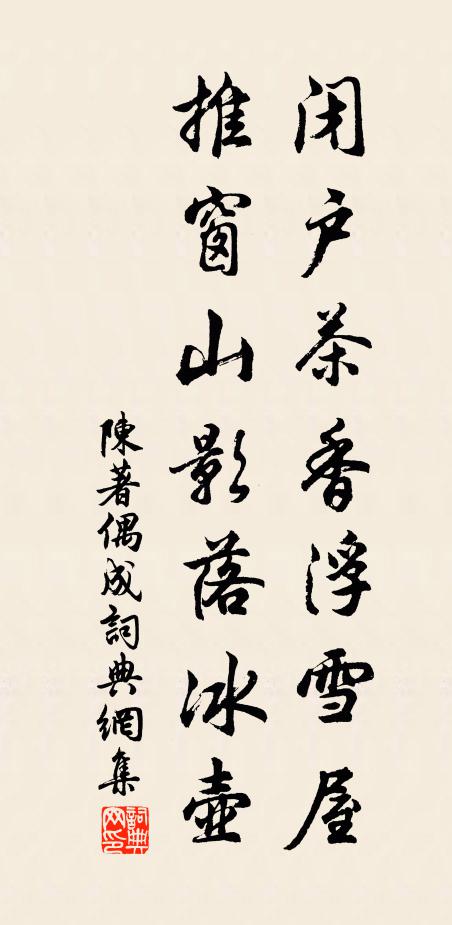 闭户茶香浮雪屋
推窗山影落冰壶
陳著偶成詞典網集
詞典网印